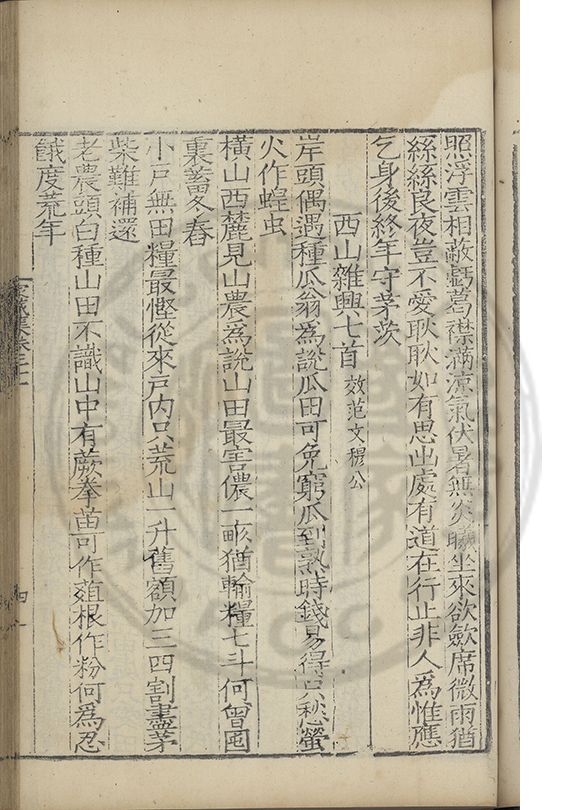 照浮雲相蔽虧葛襟滿涼氣伏暑無炎曦坐來欲斂席微雨猶
絲絲良夜豈不愛耿耿如有思出處有道在行止非人為惟應
乞身後終年守茅茨
西山雜興七首 效范文穆公
岸頭偶遇種瓜翁為說瓜田可免窮瓜到熟時錢易得只愁螢
火作蝗虫
橫山西麓見山農為說山田最害儂一畝猶輸糧七斗何曾囤
裏蓄冬舂
小戶無田糧最慳從來戶內只荒山一升舊額加三四割盡茅
柴難補還
老農頭白種山田不識山中有蕨拳苗可作葅根作粉何為忍
餓度荒年